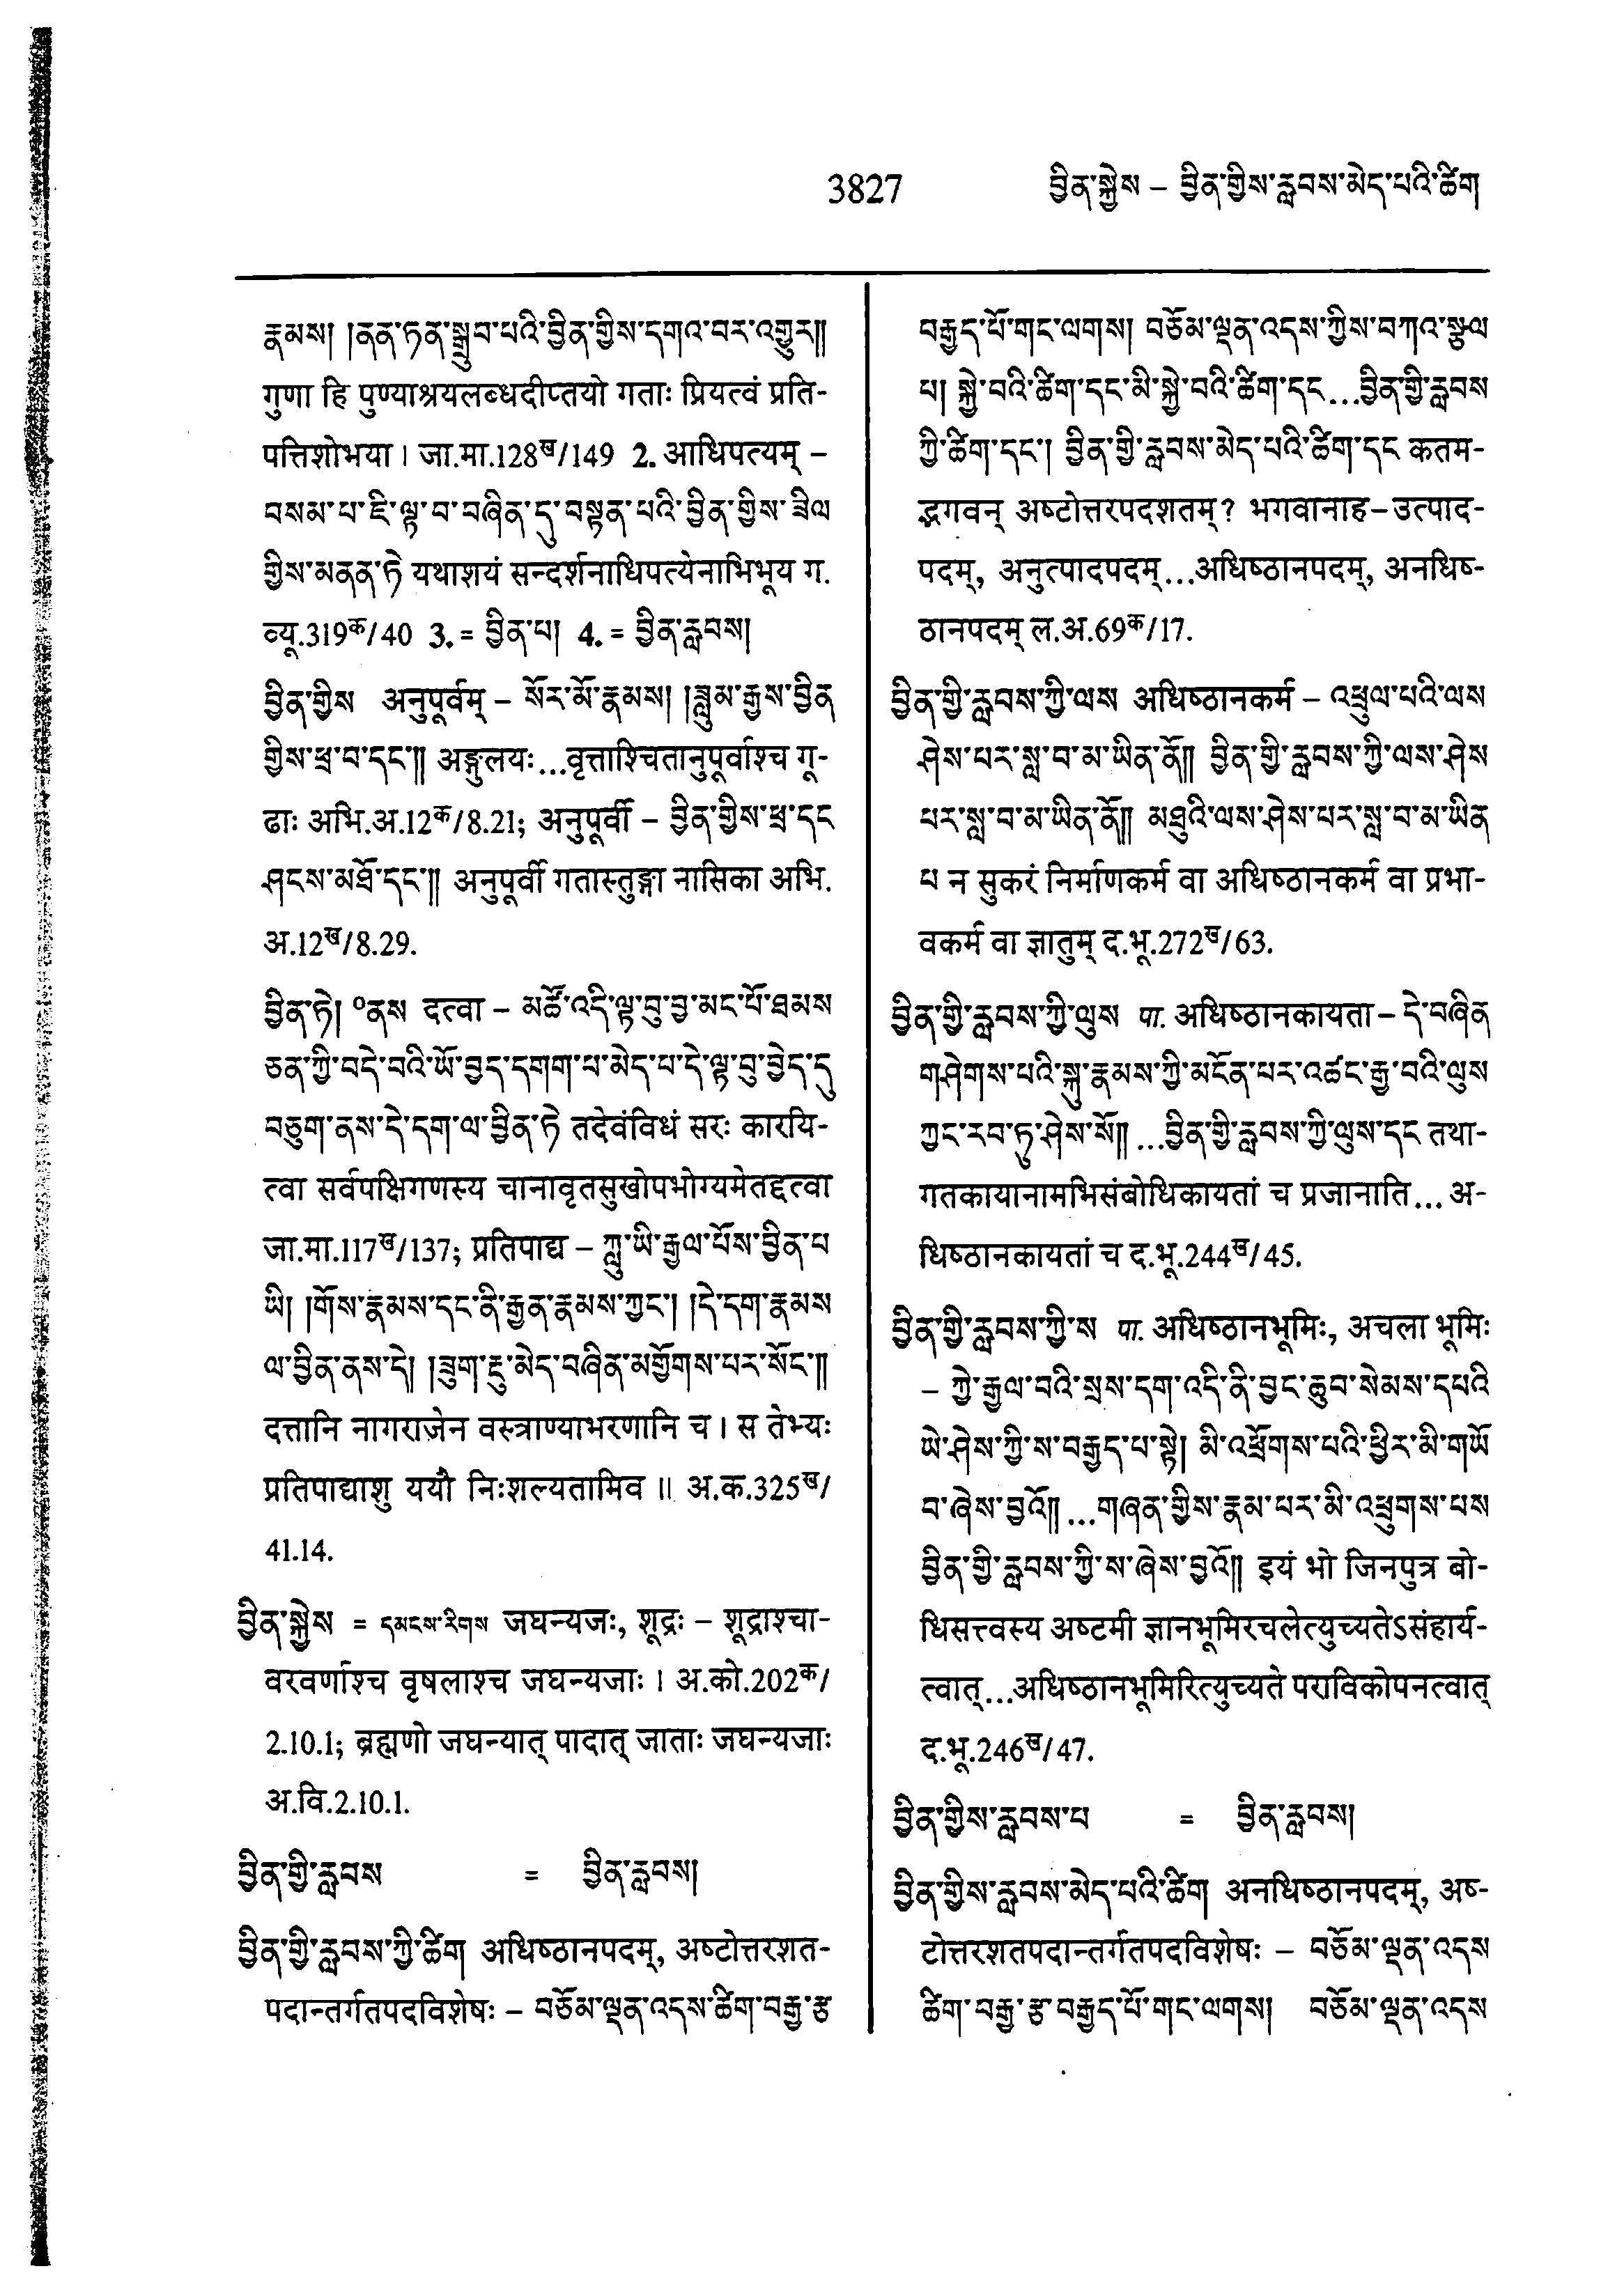 3827 བྱིན་སྐྱེས – བྱིན་གྱིས་རླབས་མེད་པའི་ཚིག
རྣམས། །ནན་ཏན་སྒྲུབ་པའི་བྱིན་གྱིས་དགའ་བར་འགྱུར༎
गुणा हि पुण्याश्रयलब्धदीप्तयो गताः प्रियत्वं प्रति-
पत्तिशोभया । जा.मा.128ख/149 2. आधिपत्यम् –
བསམ་པ་ཇི་ལྟ་བ་བཞིན་དུ་བསྟན་པའི་བྱིན་གྱིས་ཟིལ
གྱིས་མནན་ཏེ यथाशयं सन्दर्शनाधिपत्येनाभिभूय ग.
व्यू.319क/40 3. = བྱིན་པ། 4. = བྱིན་རླབས།
བྱིན་གྱིས अनुपूर्वम् – སོར་མོ་རྣམས། །ཟླུམ་རྒྱས་བྱིན
གྱིས་ཕྲ་བ་དང་༎ अङ्गुलयः...वृत्ताश्चितानुपूर्वाश्च गू-
ढाः अभि.अ.12क/8.21; अनुपूर्वी – བྱིན་གྱིས་ཕྲ་དང
ཤངས་མཐོ་དང་༎ अनुपूर्वी गतास्तुङ्गा नासिका अभि.
अ.12ख/8.29.
བྱིན་ཏེ། ॰ནས दत्वा – མཚོ་འདི་ལྟ་བུ་བྱ་མང་པོ་ཐམས
ཅན་ཀྱི་བདེ་བའི་ཡོ་བྱད་དགག་པ་མེད་པ་དེ་ལྟ་བུ་བྱེད་དུ
བཅུག་ནས་དེ་དག་ལ་བྱིན་ཏེ तदेवंविधं सरः कारयि-
त्वा सर्वपक्षिगणस्य चानावृतसुखोपभोग्यमेतद्दत्वा
जा.मा.117ख/137; प्रतिपाद्य – ཀླུ་ཡི་རྒྱལ་པོས་བྱིན་པ
ཡི། །གོས་རྣམས་དང་ནི་རྒྱན་རྣམས་ཀྱང་། །དེ་དག་རྣམས
ལ་བྱིན་ནས་དེ། །ཟུག་རྔུ་མེད་བཞིན་མགྱོགས་པར་སོང་༎
दत्तानि नागराजेन वस्त्राण्याभरणानि च । स तेभ्यः
प्रतिपाद्याशु ययौ निःशल्यतामिव ॥ अ.क.325ख/
41.14.
བྱིན་སྐྱེས = དམངས་རིགས जघन्यजः, शूद्रः – शूद्राश्चा-
वरवर्णाश्च वृषलाश्च जघन्यजाः । अ.को.202क/
2.10.1; ब्रह्मणो जघन्यात् पादात् जाताः जघन्यजाः
अ.वि.2.10.1.
བྱིན་གྱི་རླབས = བྱིན་རླབས།
བྱིན་གྱི་རླབས་ཀྱི་ཚིག अधिष्ठानपदम्, अष्टोत्तरशत-
पदान्तर्गतपदविशेषः – བཅོམ་ལྡན་འདས་ཚིག་བརྒྱ་རྩ
བརྒྱད་པོ་གང་ལགས། བཅོམ་ལྡན་འདས་ཀྱིས་བཀའ་སྩལ
པ། སྐྱེ་བའི་ཚིག་དང་མི་སྐྱེ་བའི་ཚིག་དང...བྱིན་གྱི་རླབས
ཀྱི་ཚིག་དང་། བྱིན་གྱི་རླབས་མེད་པའི་ཚིག་དང कतम-
द्भगवन् अष्टोत्तरपदशतम्? भगवानाह – उत्पाद-
पदम्, अनुत्पादपदम्...अधिष्ठानपदम्, अनधिष-
ठानपदम् ल.अ.69क/17.
བྱིན་གྱི་རླབས་ཀྱི་ལས अधिष्ठानकर्म – འཕྲུལ་པའི་ལས
ཤེས་པར་སླ་བ་མ་ཡིན་ནོ༎ བྱིན་གྱི་རླབས་ཀྱི་ལས་ཤེས
པར་སླ་བ་མ་ཡིན་ནོ༎ མཐུའི་ལས་ཤེས་པར་སླ་བ་མ་ཡིན
པ न सुकरं निर्माणकर्म वा अधिष्ठानकर्म वा प्रभा-
वकर्म वा ज्ञातुम् द.भू.272ख/63.
བྱིན་གྱི་རླབས་ཀྱི་ལུས पा. अधिष्ठानकायता – དེ་བཞིན
གཤེགས་པའི་སྐུ་རྣམས་ཀྱི་མངོན་པར་འཚང་རྒྱ་བའི་ལུས
ཀྱང་རབ་ཏུ་ཤེས་སོ༎ ...བྱིན་གྱི་རླབས་ཀྱི་ལུས་དང तथा-
गतकायानामभिसंबोधिकायतां च प्रजानाति... अ-
धिष्ठानकायतां च द.भू.244ख/45.
བྱིན་གྱི་རླབས་ཀྱི་ས पा. अधिष्ठानभूमिः, अचला भूमिः
– ཀྱེ་རྒྱལ་བའི་སྲས་དག་འདི་ནི་བྱང་ཆུབ་སེམས་དཔའི
ཡེ་ཤེས་ཀྱི་ས་བརྒྱད་པ་སྟེ། མི་འཕྲོགས་པའི་ཕྱིར་མི་གཡོ
བ་ཞེས་བྱའོ༎ ...གཞན་གྱིས་རྣམ་པར་མི་འཕྲུགས་པས
བྱིན་གྱི་རླབས་ཀྱི་ས་ཞེས་བྱའོ༎ इयं भो जिनपुत्र बो-
धिसत्त्वस्य अष्टमी ज्ञानभूमिरचलेत्युच्यतेऽसंहार्य-
त्वात्...अधिष्ठानभूमिरित्युच्यते पराविकोपनत्वात्
द.भू.246ख/47.
བྱིན་གྱིས་རླབས་པ = བྱིན་རླབས།
བྱིན་གྱིས་རླབས་མེད་པའི་ཚིག अनधिष्ठानपदम्, अष-
टोत्तरशतपदान्तर्गतपदविशेषः – བཅོམ་ལྡན་འདས
ཚིག་བརྒྱ་རྩ་བརྒྱད་པོ་གང་ལགས། བཅོམ་ལྡན་འདས